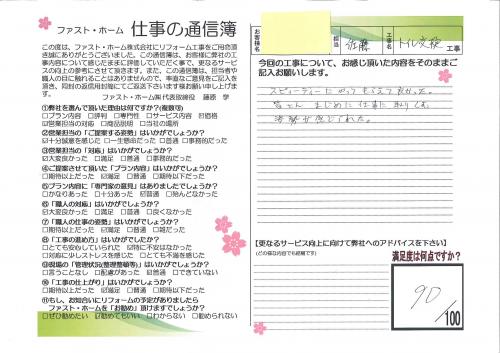 ファスト・ホーム 仕事の通信簿
この度は、ファスト・ホーム株式会社にリフォーム工事をご用命頂き誠にありがとうございました。この通信簿は、お客様に弊社の工事内容について感じたままに評価していただく事で、更なるサービスの向上の参考にさせて頂きます。また、この通信簿は、担当者や職人の目に触れることはありませんので、率直なご意見をご記入を頂き、同封の返信用封筒にてご返送下さいます様お願い申し上げます。
ファスト・ホーム㈱代表取締役 藤原 学
①弊社を選んで頂いた理由は何ですか?(複数可)
□プラン内容 □評判 □専門性 ☑サービス内容 ☑価格
□営業担当の対応 □商品説明 □当社の場所
②営業担当の「ご提案する姿勢」はいかがでしょうか?
☑十分誠意を感じた □一生懸命だった □普通 □事務的だった
③営業担当の「対応」はいかがでしょうか?
☑大変良かった □満足 □普通 □事務的だった
④ご提案させて頂いた「プラン内容」はいかがでしょうか?
□期待以上だった ☑満足 □普通 □期待以下だった
⑤プラン内容に「専門家の意見」はありましたでしょうか?
□かなりあった □十分あった ☑普通 □殆んどなかった
⑥「職人の対応」はいかがでしょうか?
☑大変良かった □満足 □普通 □良くなかった
⑦「職人の仕事の姿勢」はいかがでしょうか?
□期待以上だった ☑満足 □普通 □雑だった
⑧「工事の進め方」はいかがでしたか?
□とても安心していられた ☑特に不安はなかった
□対応に少しストレスを感じた □とても不満を感じた
⑨現場の「管理状況(整理整頓等)」はいかがでしょうか?
□言うことなし □配慮があった ☑普通 □できていない
⑩「工事の仕上がり」はいかがでしょうか?
□期待以上だった ☑満足 □普通 □期待以下だった
⑪もし、お知合いにリフォームの予定がありましたら
ファスト・ホームを「お勧め」頂けますでしょうか?
□ぜひ勧めたい ☑勧めてもいい □わからない □勧められない
お客様名
担当 佐藤
工事名 トイレ交換 工事
今回の工事について、お感じ頂いた内容をそのままご記入お願いします。
スピーディーにやってもらえて良かった。
皆さん まじめに 仕事に取りくむ
姿勢が感じられた。
【更なるサービス向上に向けて弊社へのアドバイスを下さい】
(どの様な内容でも結構です)
満足度は何点ですか?
90
/100